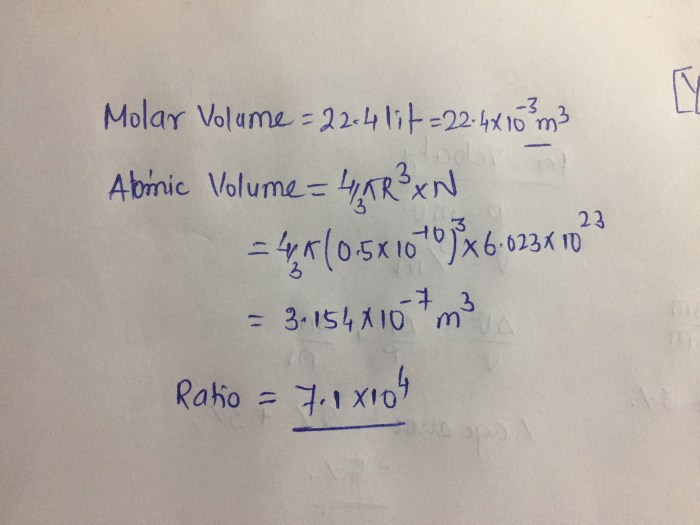 Molar Volume = 22.4 lit = 22.4×10⁻³ m³
[V
Atomic Volume = 4/3 πR³ × N
= 4/3 π(0.5×10⁻¹⁰)³ × 6.023×10²³
= 3.154×10⁻⁷ m³
Ratio = 7.1×10⁴